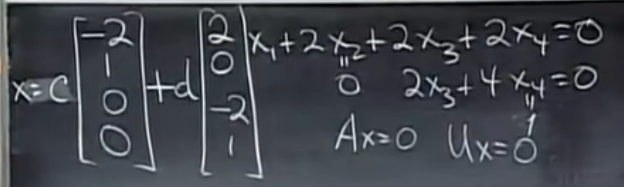 x = c [-2 1 0 0] + d [2 0 -2 1]
x₁ + 2x₂ + 2x₃ + 2x₄ = 0
"
0 2x₃ + 4x₄ = 0
" 1
Ax = 0 Ux = 0